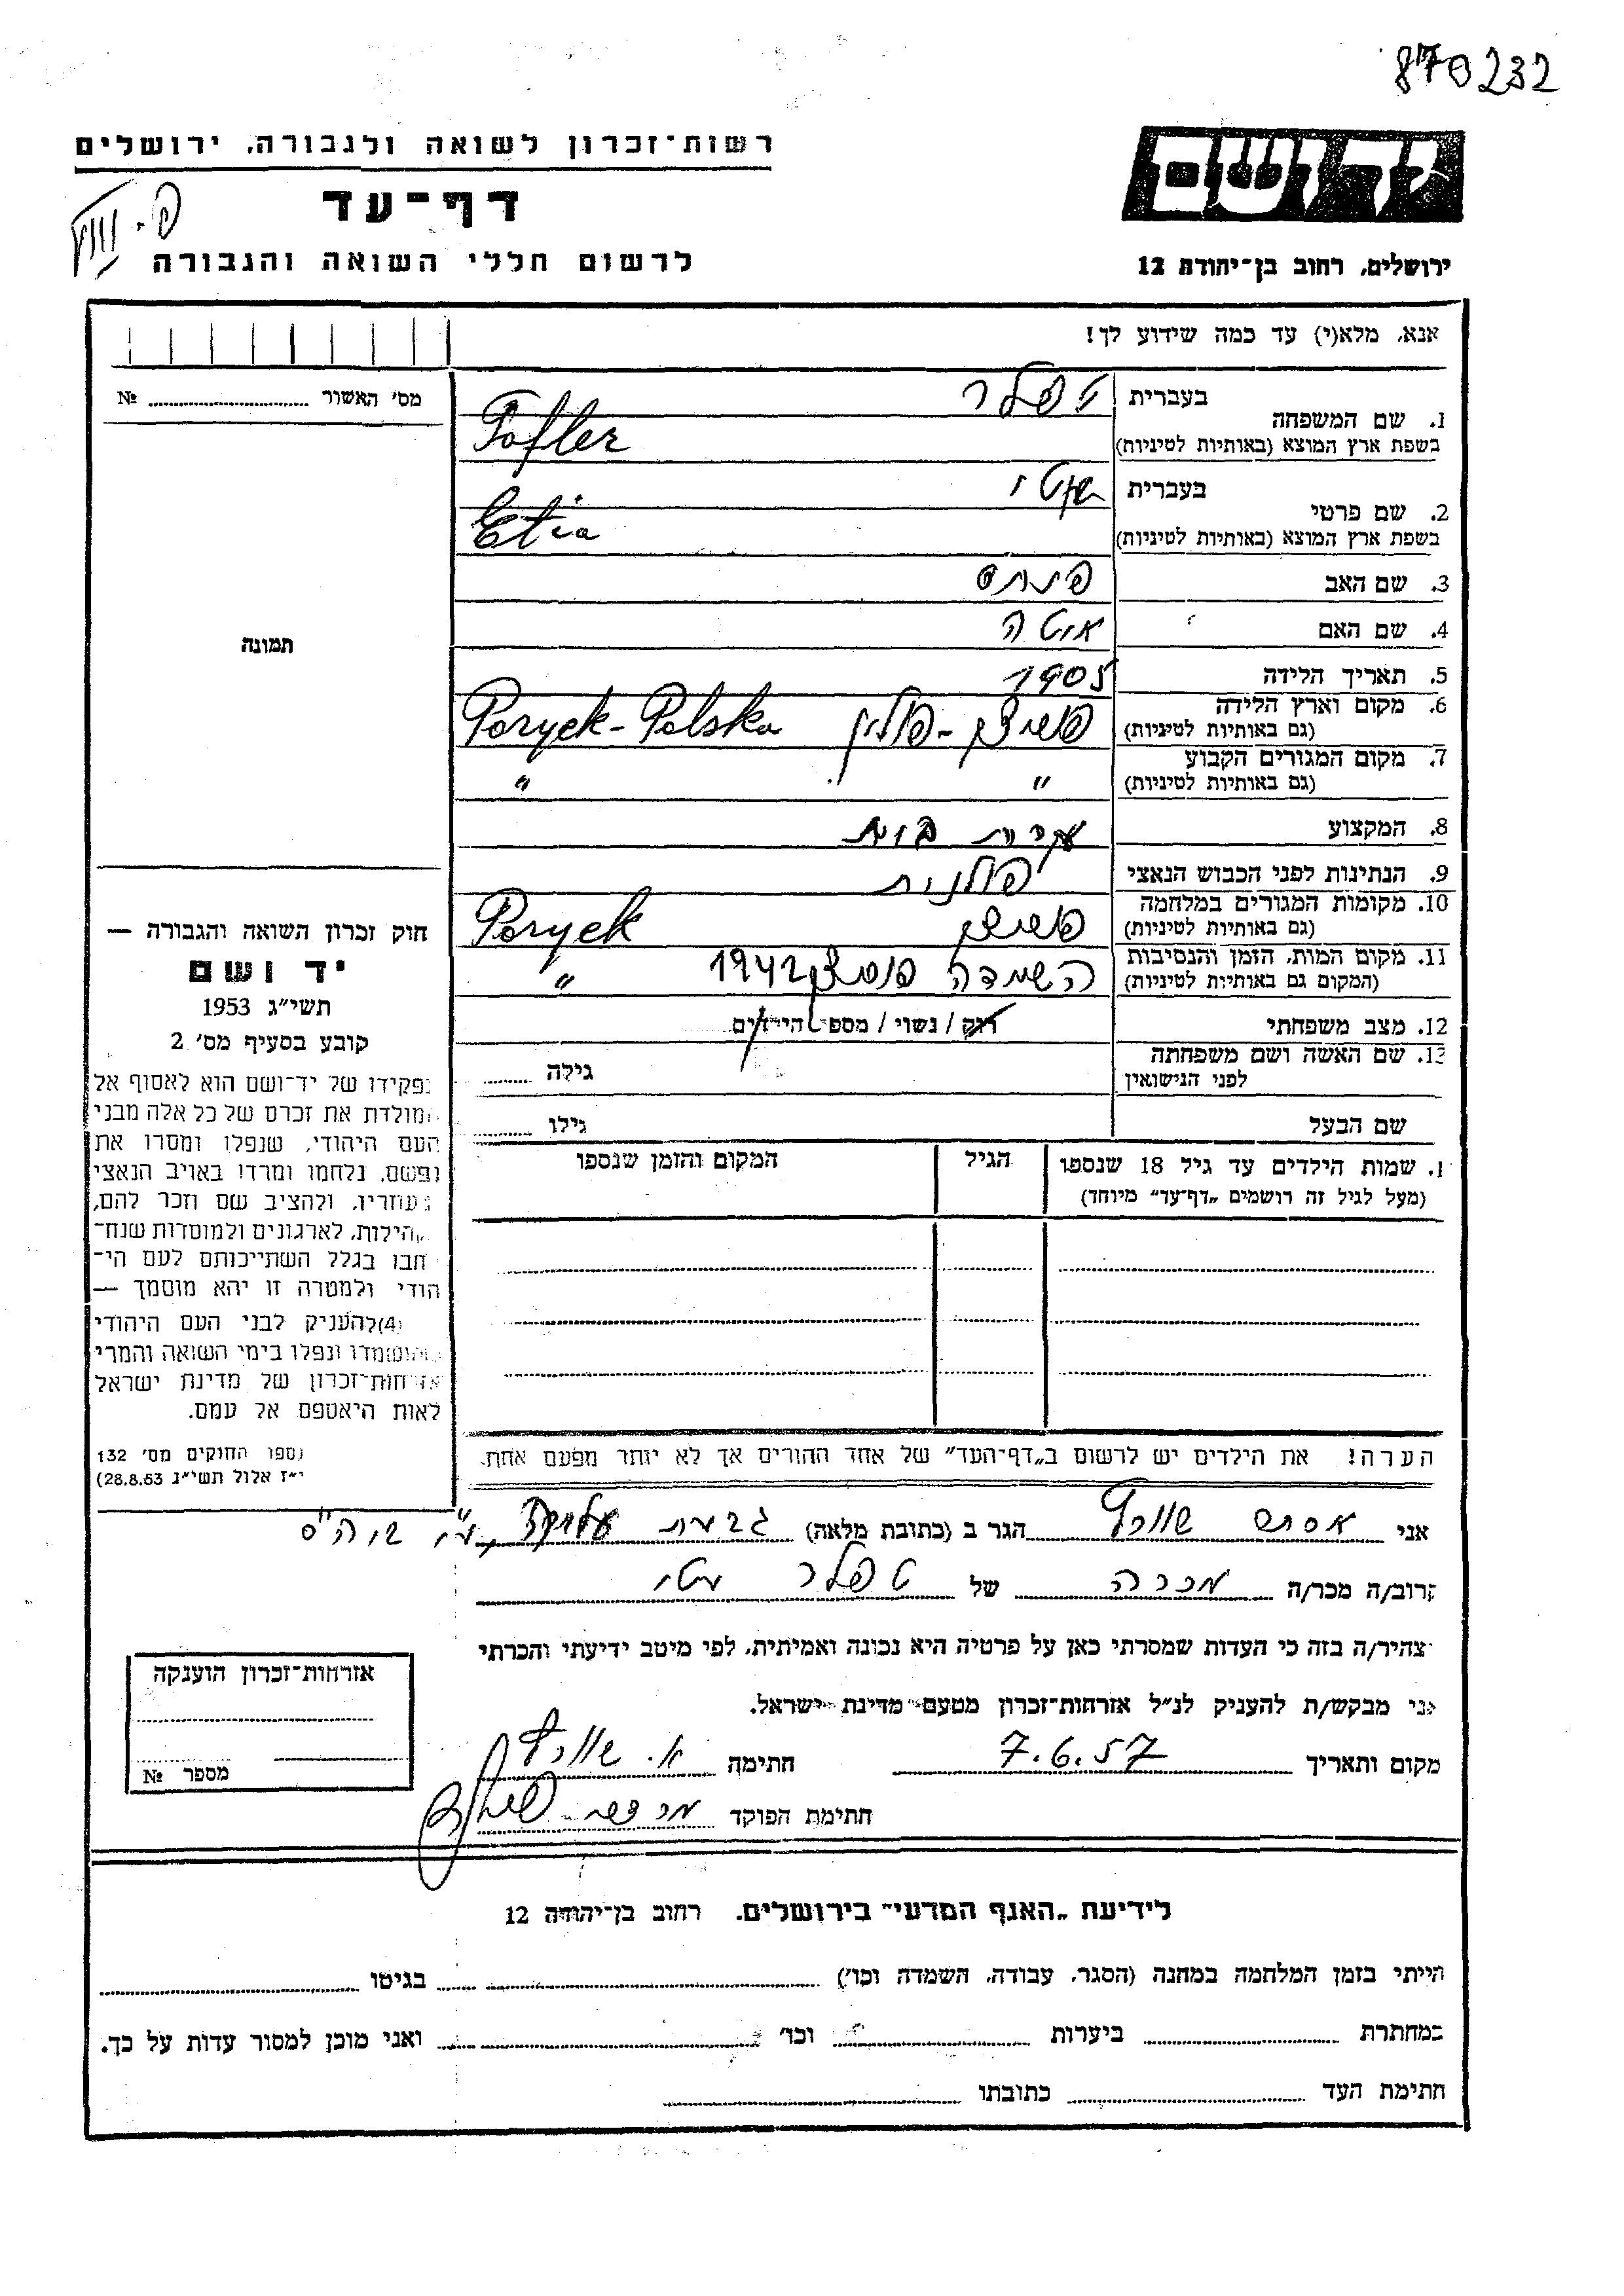 870232
רשות־זכרון לשואה ולגבורה, ירושלים
דף־עד
לרשום חללי השואה והגבורה
ירושלים, רחוב בן־יהודה 12
אנא, מלא(י) עד כמה שידוע לך!
מס' האשור № 
תמונה
1. שם המשפחה בעברית טפלר
בשפת ארץ המוצא (באותיות לטיניות) Tofler
2. שם פרטי בעברית
בשפת ארץ המוצא (באותיות לטיניות) Etia
3. שם האב פינחס
4. שם האם איטה
5. תאריך הלידה 1905
6. מקום וארץ הלידה
(גם באותיות לטיניות) פוריצק - פולין Poryck - Polska
7. מקום המגורים הקבוע
(גם באותיות לטיניות) " "
8. המקצוע עקרת בית
9. הנתינות לפני הכבוש הנאצי פולנית
10. מקומות המגורים במלחמה
(גם באותיות לטיניות) פוריצק Poryck
11. מקום המות, הזמן והנסיבות
(המקום גם באותיות לטיניות) השמדה פוריצק 1942 "
12. מצב משפחתי רוק / נשוי / מספר הילדים
13. שם האשה ושם משפחתה
לפני הנישואין גילה
שם הבעל גילו
שמות הילדים עד גיל 18 שנספו הגיל המקום והזמן שנספו
(מעל לגיל זה רושמים „דף־עד" מיוחד)
הערה! את הילדים יש לרשום ב„דף־העד" של אחד ההורים אך לא יותר מפעם אחת.
חוק זכרון השואה והגבורה —
יד ושם
תשי״ג 1953
קובע בסעיף מס' 2
תפקידו של יד־ושם הוא לאסוף אל
המולדת את זכרם של כל אלה מבני
העם היהודי, שנפלו ומסרו את
נפשם, נלחמו ומרדו באויב הנאצי
ובעוזריו, ולהציב שם וזכר להם,
לקהילות, לארגונים ולמוסדות שנח־
רבו בגלל השתייכותם לעם הי־
הודי ולמטרה זו יהא מוסמך —
(4) להעניק לבני העם היהודי
שהושמדו ונפלו בימי השואה והמרי
אזרחות־זכרון של מדינת ישראל
לאות היאספם אל עמם.
(ספר החוקים מס' 132
י״ז אלול תשי״ג 28.8.53)
אני אסתר שוורץ הגר ב (כתובת מלאה) גבעת
קרוב/ה מכר/ה מכרה של טפלר
מצהיר/ה בזה כי העדות שמסרתי כאן על פרטיה היא נכונה ואמיתית, לפי מיטב ידיעתי והכרתי
אני מבקש/ת להעניק לנ״ל אזרחות־זכרון מטעם מדינת ישראל.
מקום ותאריך 7.6.57 חתימה א. שוורץ
חתימת הפוקד
אזרחות־זכרון הוענקה
מספר №
לידיעת „האגף המדעי" בירושלים, רחוב בן־יהודה 12
הייתי בזמן המלחמה במחנה (הסגר, עבודה, השמדה וכו') בגיטו
במחתרת ביערות וכו' ואני מוכן למסור עדות על כך.
חתימת העד כתובתו